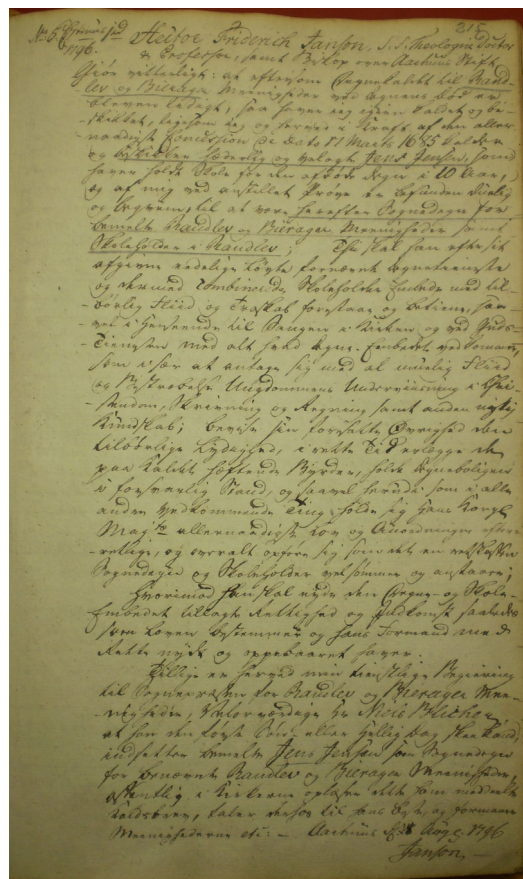 218
1796.
Hector Friderich Janson, S. S. Theologiæ Doctor
& Professor, samt Biskop over Aarhuus Stift
Giør vitterligt: at eftersom Degnekaldet til Rand-
lev og Bieræger Meenigheder ved Degnens Død er
bleven ledigt, saa haver jeg igien kaldet og be-
skikket, ligesom jeg og herved i Kraft af den aller-
naadigste Concession de dato 7 Martii 1685 kalder
og beskikker hæderlig og velagt Jens Jensen, som
haver holdt Skole for den afdøde Degn i 10 Aar,
og af mig ved anstillet Prøve er befunden
og beqvem, til at være herefter Sognedegn for
bemelte Randlev og Bieræger Meenigheder samt
Skoleholder i Randlev; Thi skal han efter sit
afgivne eedelige Løfte
og dermed combinerede Skoleholder Embede med til-
børlig Fliid og Troskab forestaae og betiene, saa-
vel i Henseende til Sangen i Kirken og ved Guds-
Tienesten med alt hvad Degne-Embedet vedkommer,
som især at antage sig med al muelig Fliid
og Bestræbelse Ungdommens Underviisning i Chri-
stendom, Skrivning og Regning samt anden nyttig
Kundskab; bevise sin foresatte Øvrighed den
tilbørlige Lydighed, i rette Tid erlægge de
paa Kaldet hæftende Byrder, holde Degneboligen
i forsvarlig Stand, og saavel herudi som i alle
andre vedkommende Ting holde sig Hans Kongl.
Maj:ts allernaadigste Lov og Anordninger efter-
rettelig, og overalt opføre sig som det en retskaffen
Sognedegn og Skoleholder vel sømmer og anstaaer;
Hvorimod Han skal nyde den Degne- og Skole-
Embedet tillagte Rettighed og Indkomst saaledes
som Loven bestemmer og Hans Formand med
Rette nydt og oppebaaret haver.
Tillige er herved min tienstlige Begiering
til Sognepræsten for Randlev og Bieræger Mee-
nigheder, Velærværdige Hr Niels Blicher,
at han den første Søn- eller Hellig Dag skee kand,
indsetter bemelte Jens Jensen som Sognedegn
for benævnte Randlev og Bieræger Meenigheder,
offentlig i Kirkerne oplæser dette ham meddeelte
Kaldsbrev, taler derhos til hans og formaner
Meenighederne etc: — Aarhuus d: Aug. 1796
Janson. —